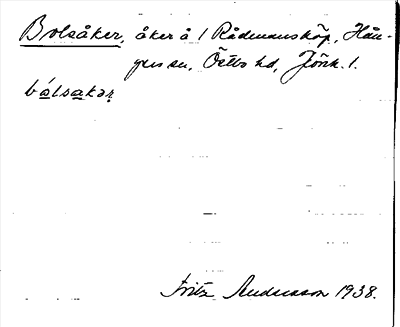 Bolsåker, åker å 1 Rådmansköp, Hån-
ger sn, Östbo hd, Jönk. l.
bálsakạr
Fritz Andersson 1938.